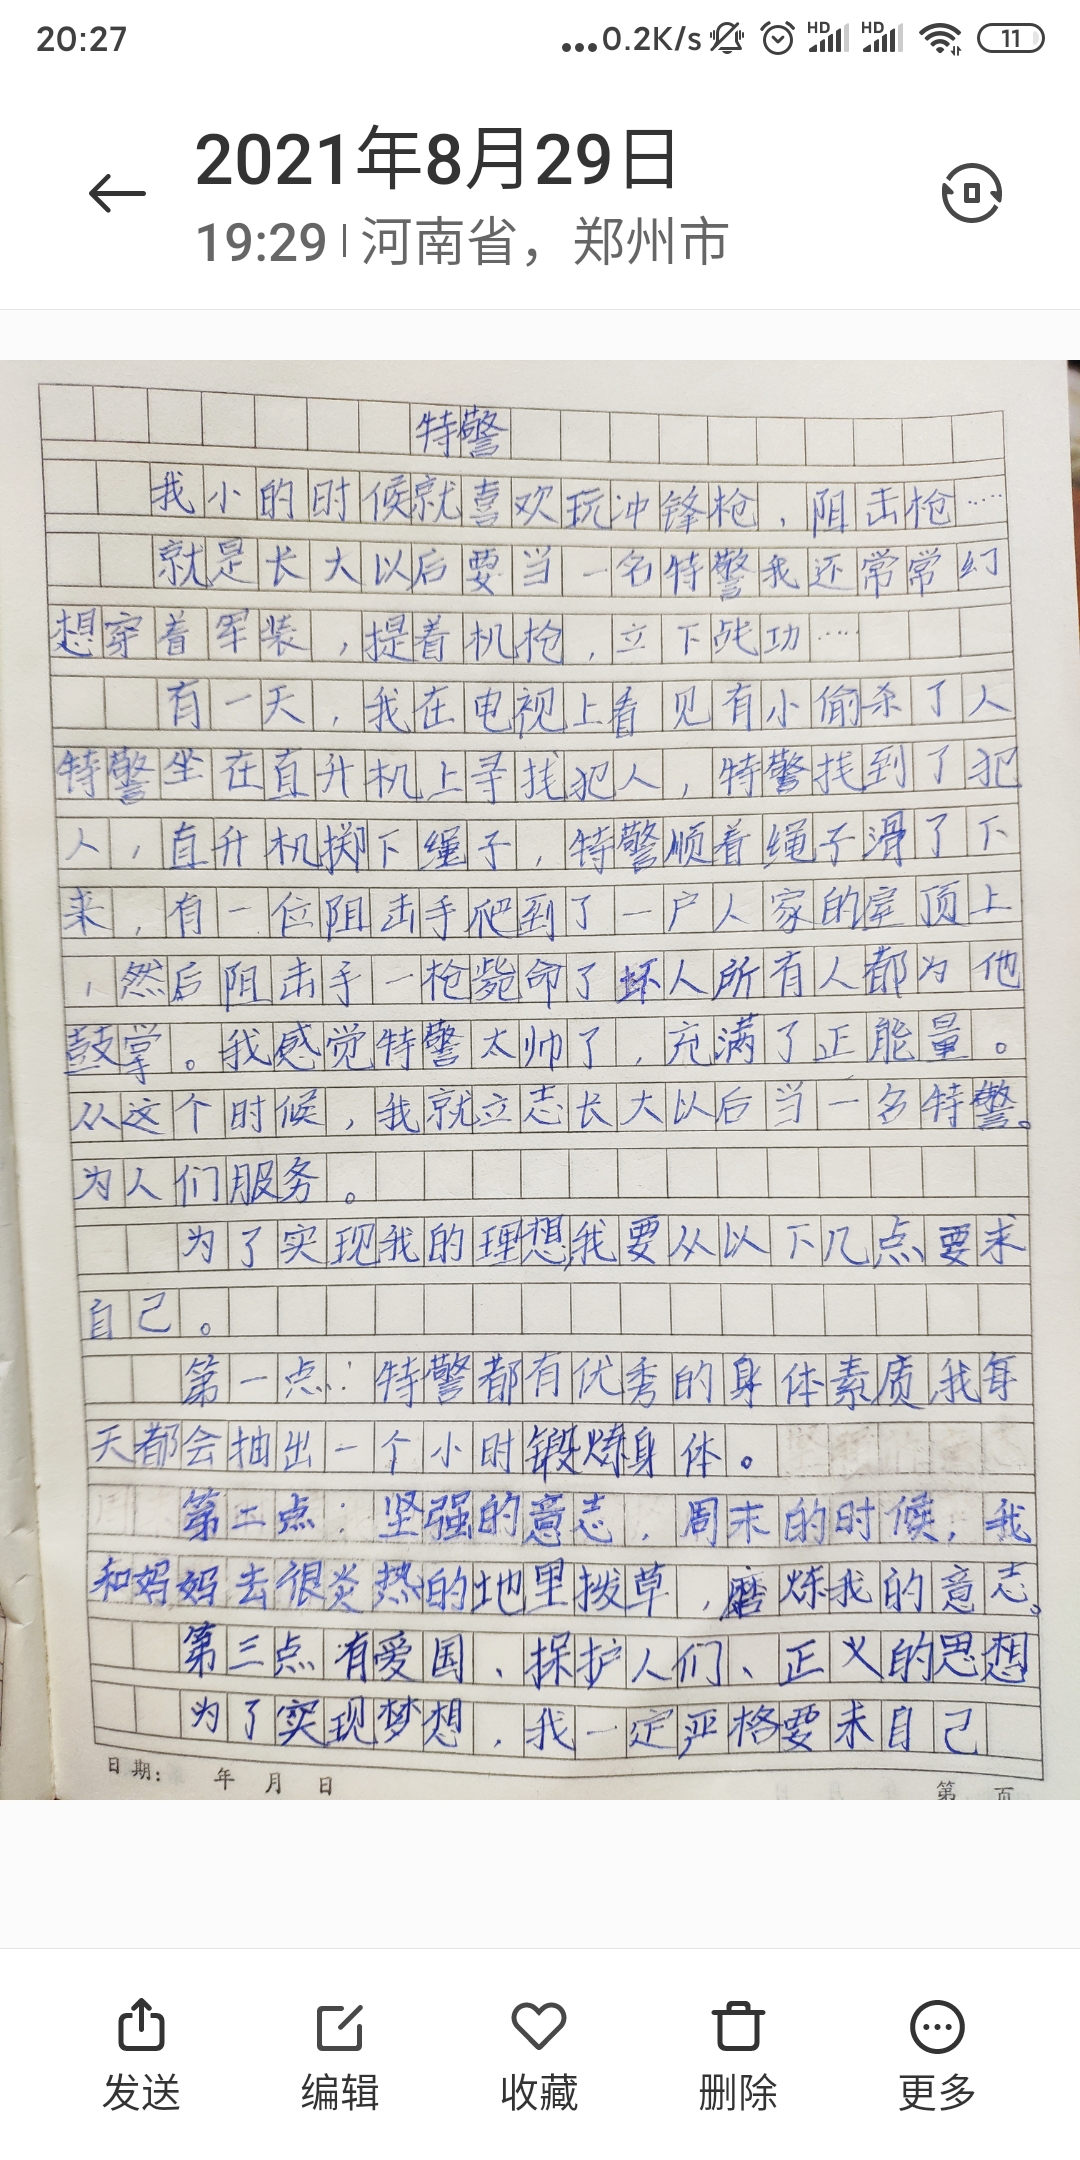 20:27
...0.2K/s HD HD 11
2021年8月29日
19:29 | 河南省，郑州市
特警
我小的时候就喜欢玩冲锋枪，阻击枪……
就是长大以后要当一名特警我还常常幻
想穿着军装，提着机枪，立下战功……
有一天，我在电视上看见有小偷杀了人
特警坐在直升机上寻找犯人，特警找到了犯
人，直升机掷下绳子，特警顺着绳子滑了下
来，有一位阻击手爬到了一户人家的屋顶上
，然后阻击手一枪毙命了坏人所有人都为他
鼓掌。我感觉特警太帅了，充满了正能量。
从这个时候，我就立志长大以后当一名特警。
为人们服务。
为了实现我的理想,我要从以下几点要求
自己。
第一点：特警都有优秀的身体素质,我每
天都会抽出一个小时锻炼身体。
第二点：坚强的意志，周末的时候，我
和妈妈去很炎热的地里拨草，磨炼我的意志。
第三点有爱国、保护人们、正义的思想
为了实现梦想，我一定严格要求自己
日期： 年 月 日
第 页
发送 编辑 收藏 删除 更多